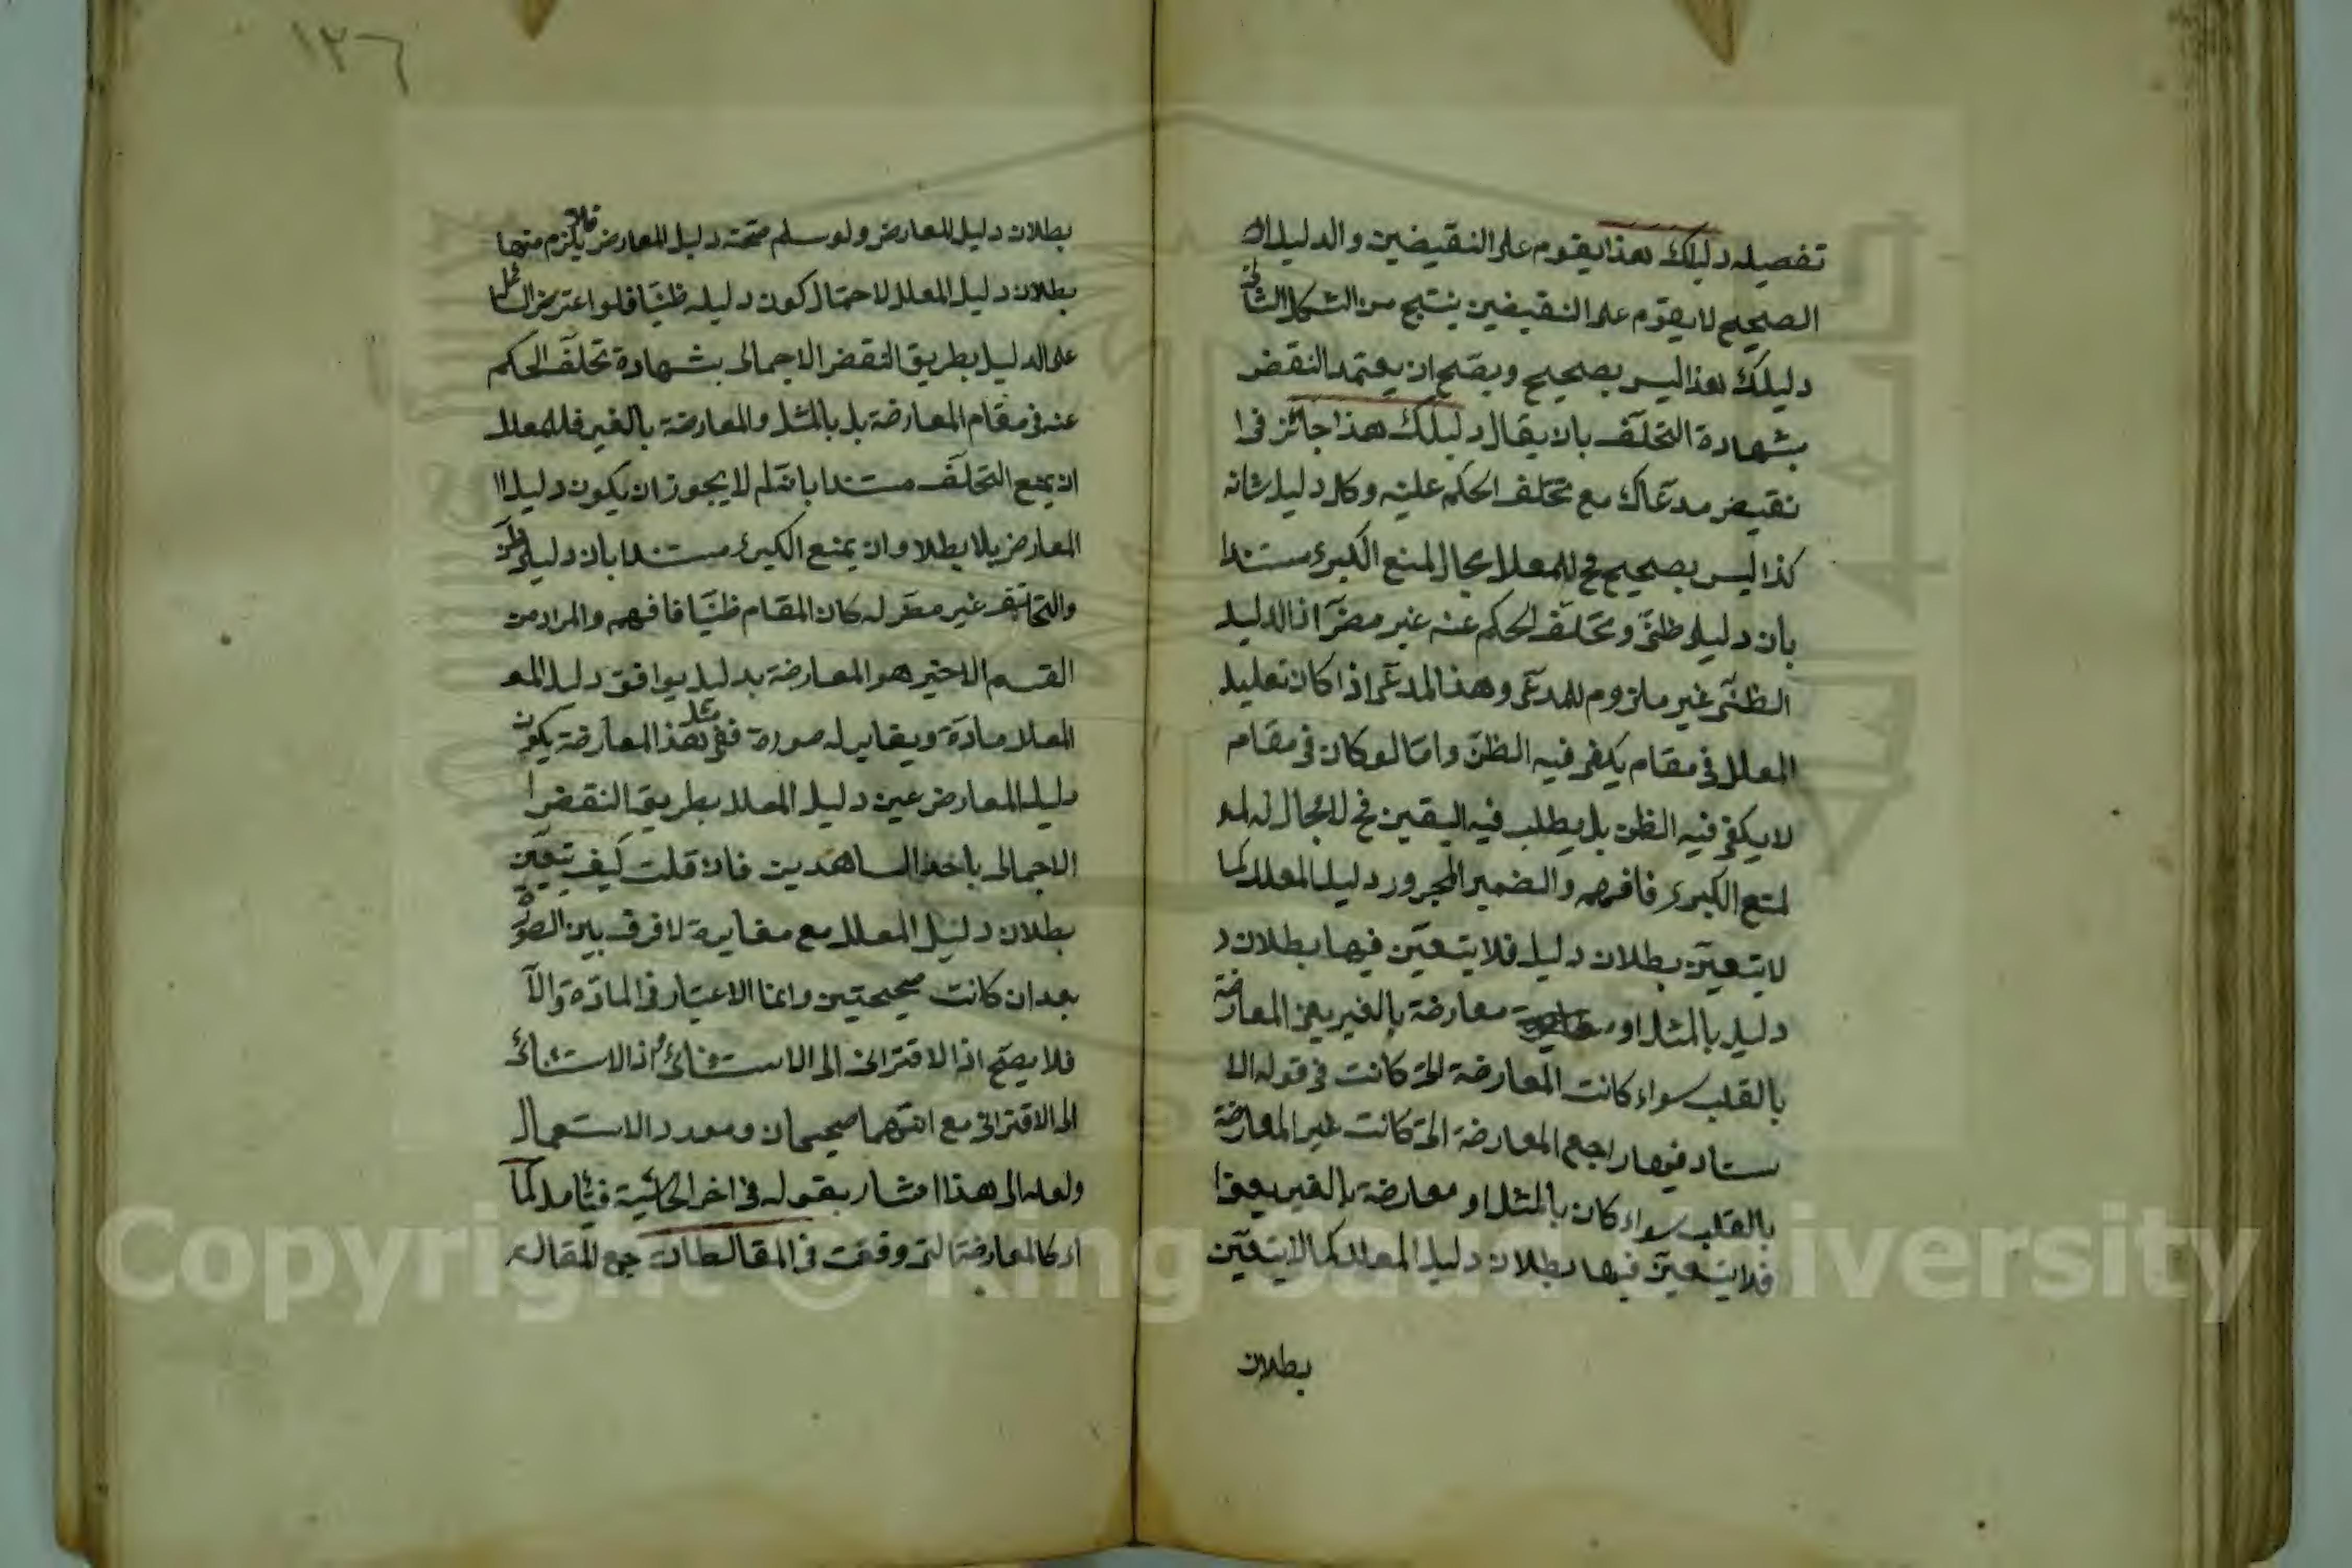 تفصيله دليلك هذا يقوم على النقيضين والدليل ال
الصحيح لا يقوم على النقيضين ينتج من الشكل الثاني
دليلك هذا ليس بصحيح ويصح ان يعتمد النقض
بشهادة التخلف بان يقال دليلك هذا جائز في ا
نقيض مدعاك مع تخلف الحكم عليه وكل دليل شانه
كذا ليس بصحيح فح للمعلل مجال لمنع الكبرى مستندا
بان دليلى ظنى وتخلف الحكم عنه غير مضر اذ الدليل
الظنى غير ملزوم للمدعى وهذا المدعى اذا كان تعليل
المعلل في مقام يكفى فيه الظن واما لو كان في مقام
لا يكفى فيه الظن بل يطلب فيه اليقين فح لا مجال له لمنع
لمنع الكبرى فافهم والضمير المجرور دليل المعلل كما
لا يتعين بطلان دليل فلا يتعين فيها بطلان د
دليل بالمثل او معارضة بالغير يعنى المعارضة
بالقلب سواء كانت المعارضة التى كانت في قوله الا
ستاد فيها راجع المعارضة التى كانت غير المعارضة
بالقلب سواء كان بالمثل او معارضة بالغير يعنى ا
فلا يتعين فيها بطلان دليل المعلل كما لا يتعين
بطلان
١٣٦
بطلان دليل المعارض ولو سلم صحة دليل المعارض فلا يلزم منها
بطلان دليل المعلل لاحتمال كون دليله ظنيا فلو اعترض السائل
على الدليل بطريق النقض الاجمالى بشهادة تخلف الحكم
عنه في مقام المعارضة بل بالمثل والمعارضة بالغير فللمعلل
ان يمنع التخلف مستندا بانه لم لا يجوز ان يكون دليل ا
المعارض بلا بطلا وان يمنع الكبرى مستندا بان دليلى ظن
والتخلف غير مضر له كان المقام ظنيا فافهم والمراد من
القسم الاخير هو المعارضة بدليل يوافق دليل المع
المعلل مادة ويغاير له صورة ففى مثل هذا المعارضة يكون
دليل المعارض عين دليل المعلل بطريق النقض ا
الاجمالى باخذ الساهدين فان قلت كيف يتعين
بطلان دليل المعلل مع مغايرة لا فرق بين الصورة
بعد ان كانت صحيحتين وانما الاعتبار في المادة والا
فلا يصح اذ الاقترانى الى الاستثنائى اذ الاستثنائى
الى الاقترانى مع انهما صحيحان ومورد الاستعمال
ولعله الى هذا اشار بقوله في اخر الحاشية فيتامل كما
اى كالمعارضة التى وقعت في المقالطات جمع المقالطه
Copyright © King Saud University